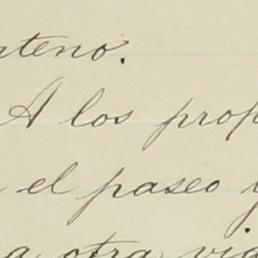 nteno.
A los prop
el paseo y
a otra vid